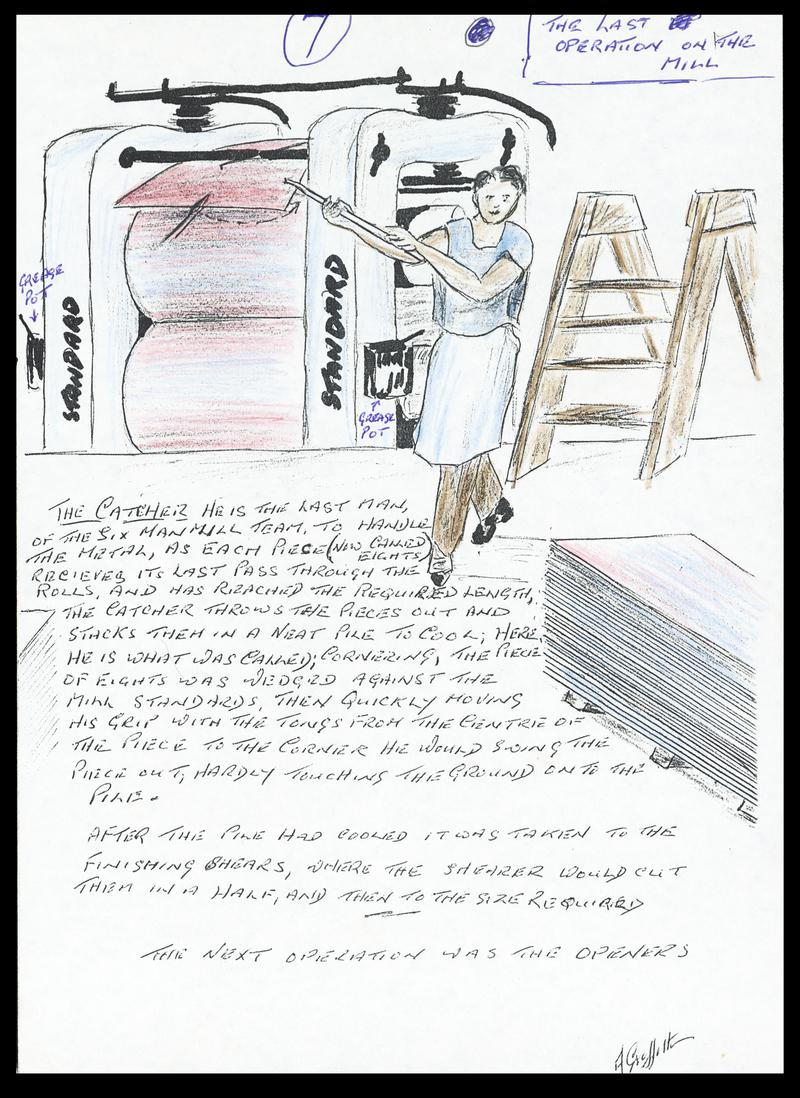 7
THE LAST
OPERATION ON THE
MILL
GREASE
POT
STANDARD
STANDARD
GREASE
POT
THE CATCHER HE IS THE LAST MAN,
OF THE SIX MAN MILL TEAM, TO HANDLE
THE METAL, AS EACH PIECE (NOW CALLED
EIGHTS)
RECIEVES ITS LAST PASS THROUGH THE
ROLLS, AND HAS REACHED THE REQUIRED LENGTH,
THE CATCHER THROWS THE PIECES OUT AND
STACKS THEM IN A NEAT PILE TO COOL; HERE,
HE IS WHAT WAS CALLED; CORNERING, THE PIECE
OF EIGHTS WAS WEDGED AGAINST THE
MILL STANDARDS, THEN QUICKLY MOVING
HIS GRIP WITH THE TONGS FROM THE CENTRE OF
THE PIECE TO THE CORNER HE WOULD SWING THE
PIECE OUT, HARDLY TOUCHING THE GROUND ON TO THE
PILE.
AFTER THE PILE HAD COOLED IT WAS TAKEN TO THE
FINISHING SHEARS, WHERE THE SHEARER WOULD CUT
THEM IN A HALF, AND THEN TO THE SIZE REQUIRED
THE NEXT OPERATION WAS THE OPENERS